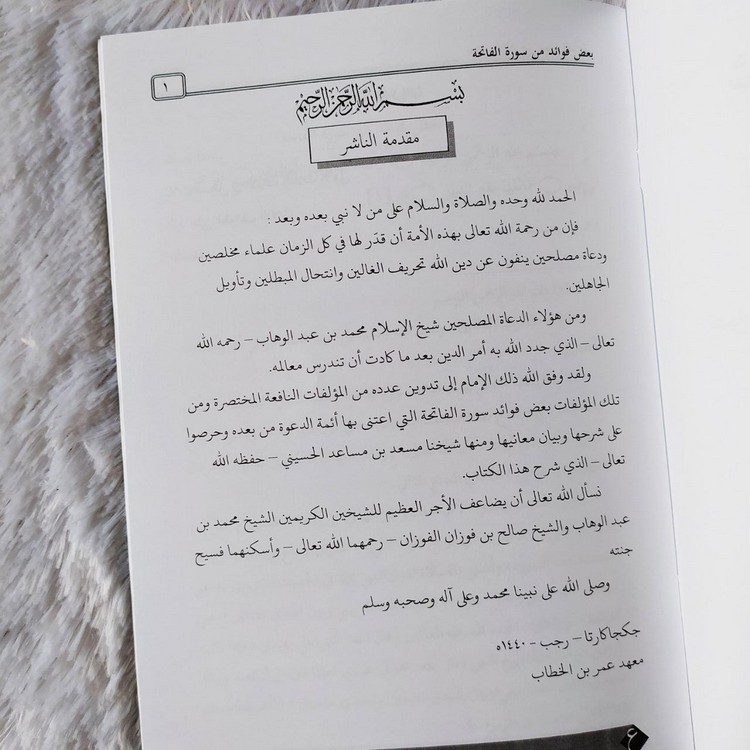 بعض فوائد من سورة الفاتحة
١
بسم الله الرحمن الرحيم
مقدمة الناشر
الحمد لله وحده والصلاة والسلام على من لا نبي بعده وبعد :
فإن من رحمة الله تعالى بهذه الأمة أن قدّر لها في كل الزمان علماء مخلصين
ودعاة مصلحين ينفون عن دين الله تحريف الغالين وانتحال المبطلين وتأويل
الجاهلين.
ومن هؤلاء الدعاة المصلحين شيخ الإسلام محمد بن عبد الوهاب – رحمه الله
تعالى – الذي جدد الله به أمر الدين بعد ما كادت أن تندرس معالمه.
ولقد وفق الله ذلك الإمام إلى تدوين عدده من المؤلفات النافعة المختصرة ومن
تلك المؤلفات بعض فوائد سورة الفاتحة التي اعتنى بها أئمة الدعوة من بعده وحرصوا
على شرحها وبيان معانيها ومنها شيخنا مسعد بن مساعد الحسيني – حفظه الله
تعالى – الذي شرح هذا الكتاب.
نسأل الله تعالى أن يضاعف الأجر العظيم للشيخين الكريمين الشيخ محمد بن
عبد الوهاب والشيخ صالح بن فوزان الفوزان – رحمهما الله تعالى – وأسكنهما فسيح
جنته
وصلى الله على نبينا محمد وعلى آله وصحبه وسلم
جكجاكارتا – رجب - ١٤٤٠ه
معهد عمر بن الخطاب